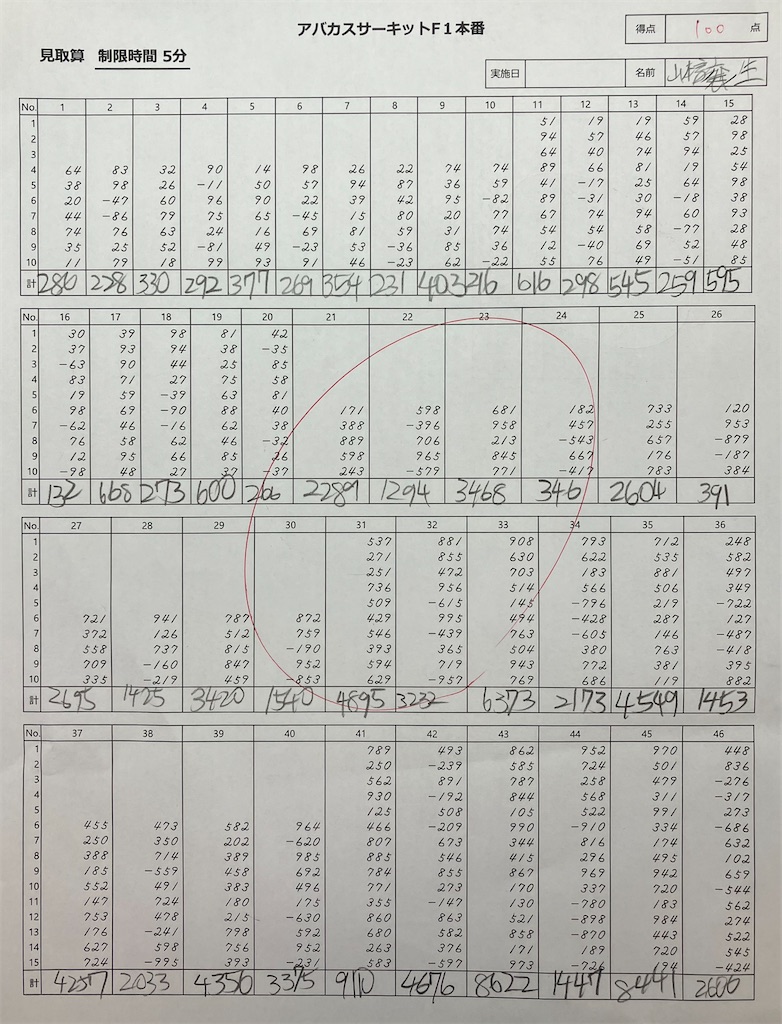 アバカスサーキットF1本番
得点 100 点
見取算 制限時間 5分
実施日 名前
No. 1 2 3 4 5 6 7 8 9 10 11 12 13 14 15
1 51 19 19 59 28
2 94 57 46 57 98
3 64 40 74 94 25
4 64 83 32 90 14 98 26 22 74 74 89 66 81 19 54
5 38 98 26 -11 50 57 94 87 36 59 41 -17 25 64 98
6 20 -47 60 96 90 22 39 42 95 -82 89 -31 30 -18 38
7 44 -86 79 75 65 -45 15 80 20 77 67 74 94 60 93
8 74 76 63 24 16 69 81 59 31 74 54 54 58 -77 28
9 35 25 52 -81 49 -23 53 -36 85 36 12 -40 69 52 48
10 11 79 18 99 93 91 46 -23 62 -22 55 76 49 -51 85
計 286 228 330 292 377 269 354 231 403 216 616 298 545 259 595
No. 16 17 18 19 20 21 22 23 24 25 26
1 30 39 98 81 42
2 37 93 94 38 -35
3 -63 90 44 25 85
4 83 71 27 75 58
5 19 59 -39 63 81
6 98 69 -90 88 40 171 598 681 182 733 120
7 -62 46 -16 62 38 388 -396 958 457 255 953
8 76 58 62 46 -32 889 706 213 -543 657 -879
9 12 95 66 85 26 598 965 845 667 176 -187
10 -98 48 27 37 -37 243 -579 771 -417 783 384
計 132 668 273 600 266 2289 1294 3468 346 2604 391
No. 27 28 29 30 31 32 33 34 35 36
1 537 881 908 793 712 248
2 271 855 630 622 535 582
3 251 472 703 183 881 497
4 736 956 514 566 506 349
5 509 -615 145 -796 219 -722
6 721 941 787 872 429 995 494 -428 287 127
7 372 126 512 759 546 -439 763 -605 146 -487
8 558 737 815 -190 393 365 504 380 763 -418
9 709 -160 847 952 594 719 943 772 381 395
10 335 -219 459 -853 629 -957 769 686 119 882
計 2695 1425 3420 1540 4895 3232 6373 2173 4549 1453
No. 37 38 39 40 41 42 43 44 45 46
1 789 493 862 952 970 448
2 250 -239 585 724 501 836
3 562 891 787 258 479 -276
4 930 -192 844 568 311 -317
5 125 508 105 522 991 273
6 455 473 582 964 466 -209 990 -910 334 -686
7 250 350 202 -620 807 673 344 816 174 632
8 388 714 389 985 885 546 415 296 495 102
9 185 -559 458 692 784 855 867 969 942 659
10 552 491 383 496 771 273 170 337 720 -544
11 147 724 180 175 355 -147 130 -780 183 562
12 753 478 215 -630 860 863 521 -898 984 274
13 176 -241 798 592 680 582 858 -870 443 522
14 627 598 756 952 263 376 171 189 720 545
15 724 -995 393 -231 583 -597 973 -726 194 -424
計 4257 2033 4356 3375 9110 4676 8622 1447 8441 2606